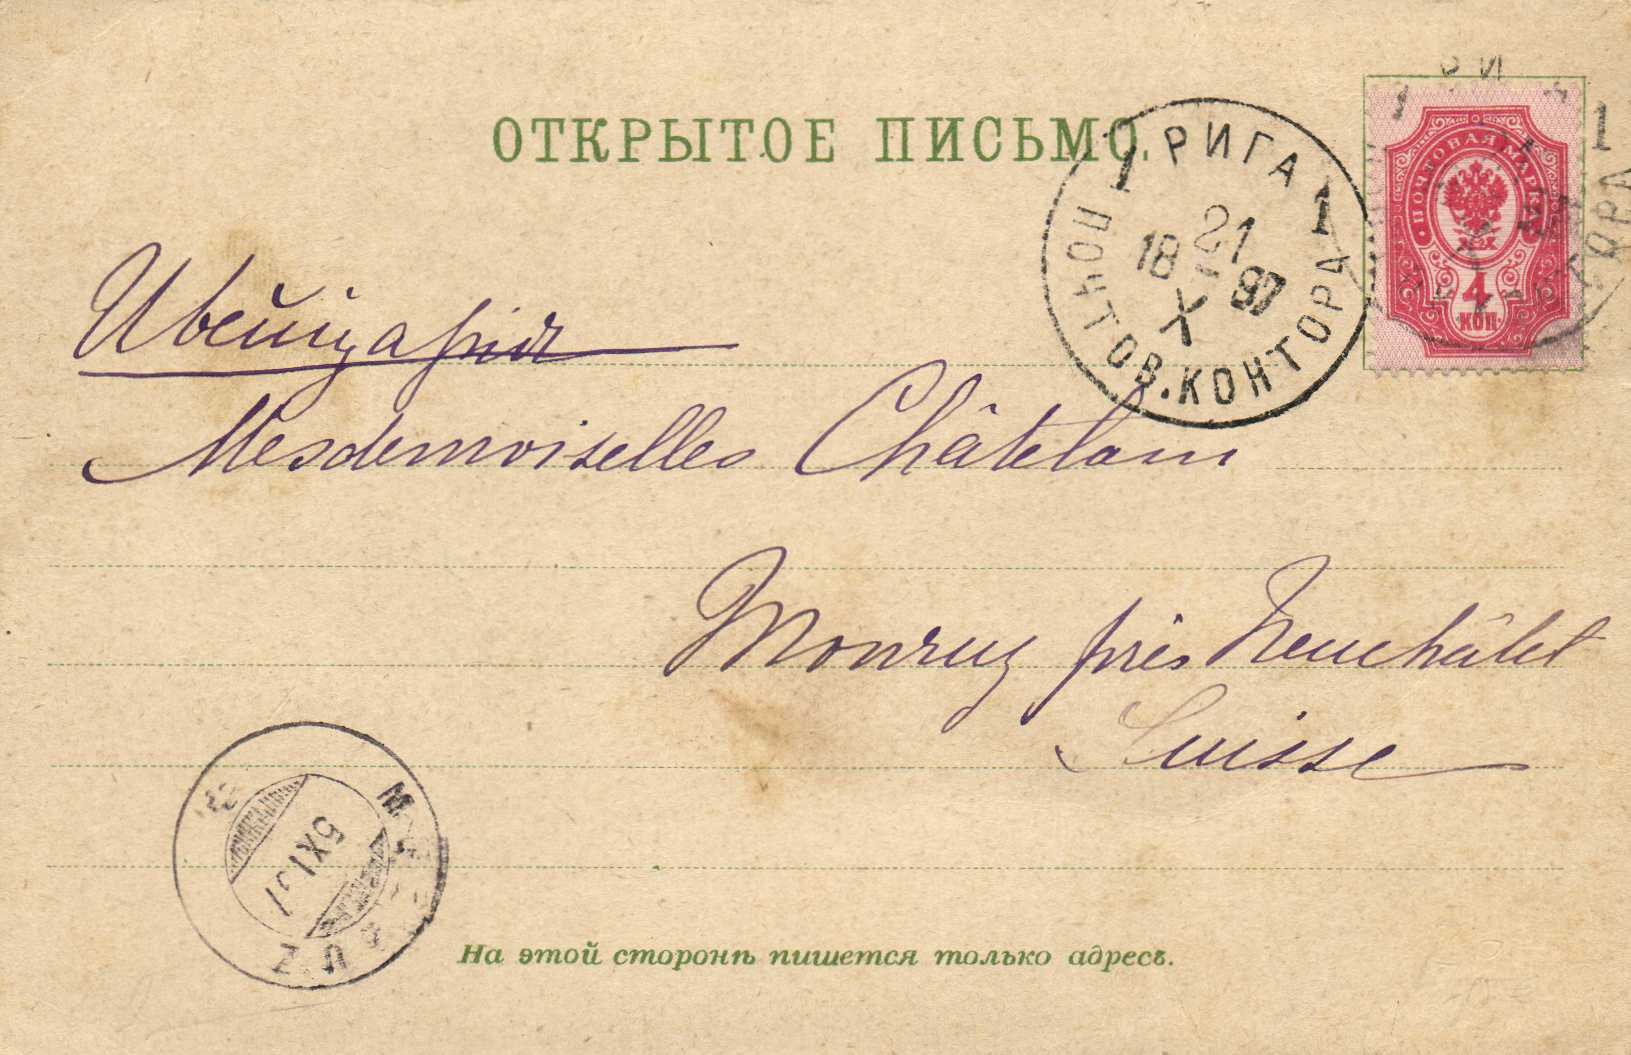 ОТКРЫТОЕ ПИСЬМО.
РИГА
1 1
21
18 X 97
ПОЧТОВ. КОНТОРА
ПОЧТОВАЯ МАРКА
4
КОП.
Швейцарія
Mesdemoiselles Châtelain
Monruz près Neuchâtel
Suisse
5 XI 97
На этой сторонѣ пишется только адресъ.